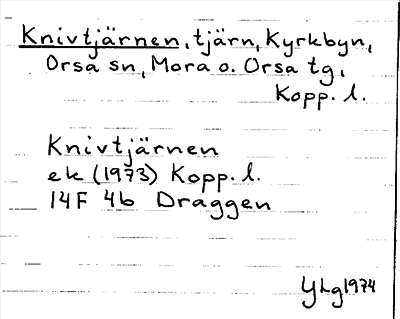 Knivtjärnen, tjärn, Kyrkbyn,
Orsa sn, Mora o. Orsa tg,
Kopp. l.
Knivtjärnen
ek (1973) Kopp. l.
14F 4b Draggen
YLg 1974